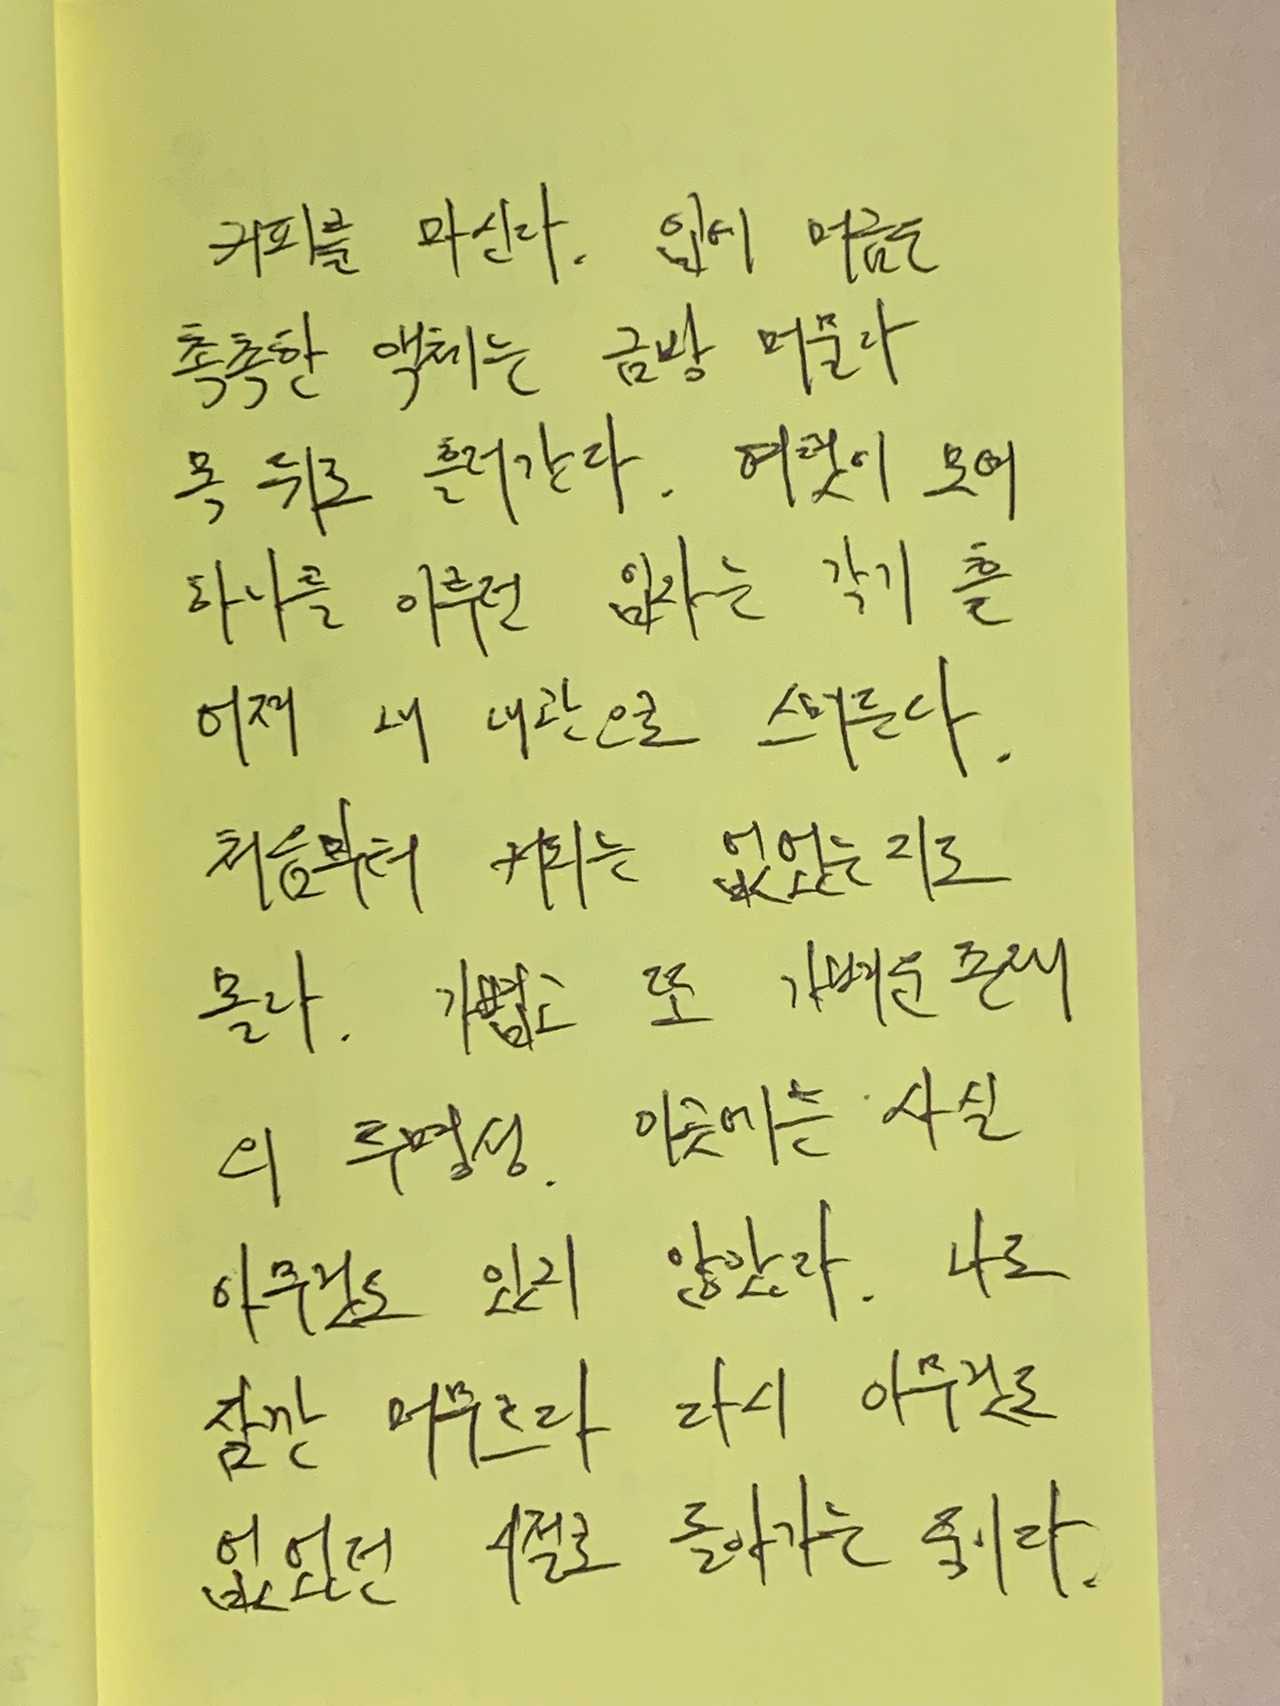 커피를 마신다. 입에 머금은
촉촉한 액체는 금방 머물다
목 뒤로 흘러간다. 여럿이 모여
하나를 이루던 입자는 각기 흩
어져 내 내관으로 스며든다.
처음부터 커피는 없었는지도
몰라. 가볍고 또 가벼운 존재
의 투명성. 이곳에는 사실
아무것도 있지 않았다. 나도
잠깐 머무르다 다시 아무것도
없었던 시절로 돌아가는 중이다.